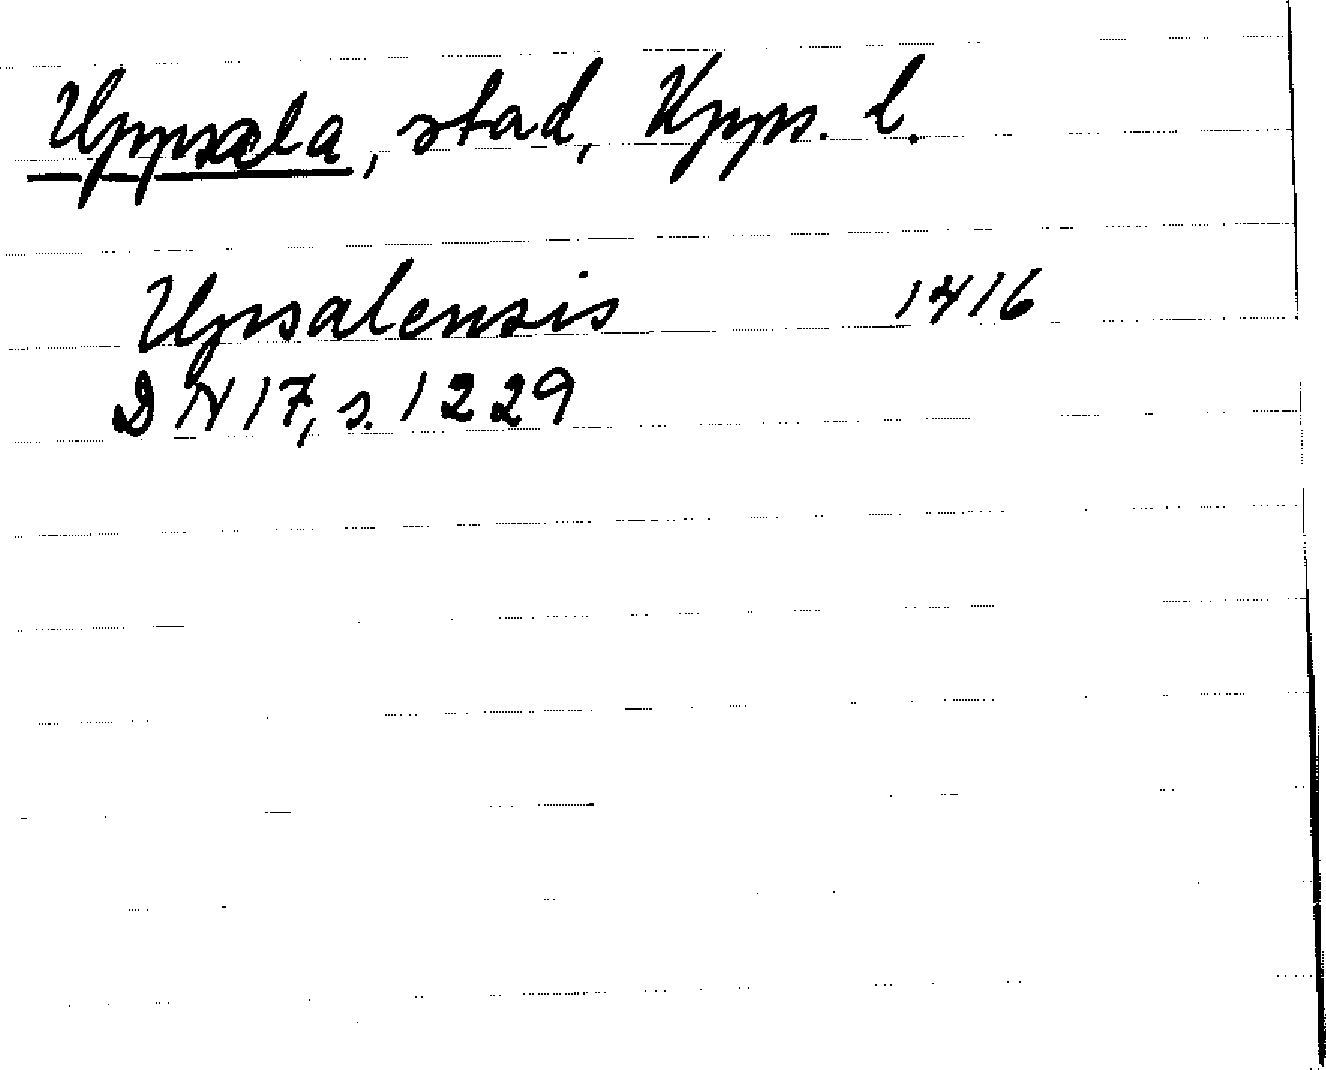 Uppsala, stad, Upps. l.
Upsalensis 1416
DN 17, s. 1229